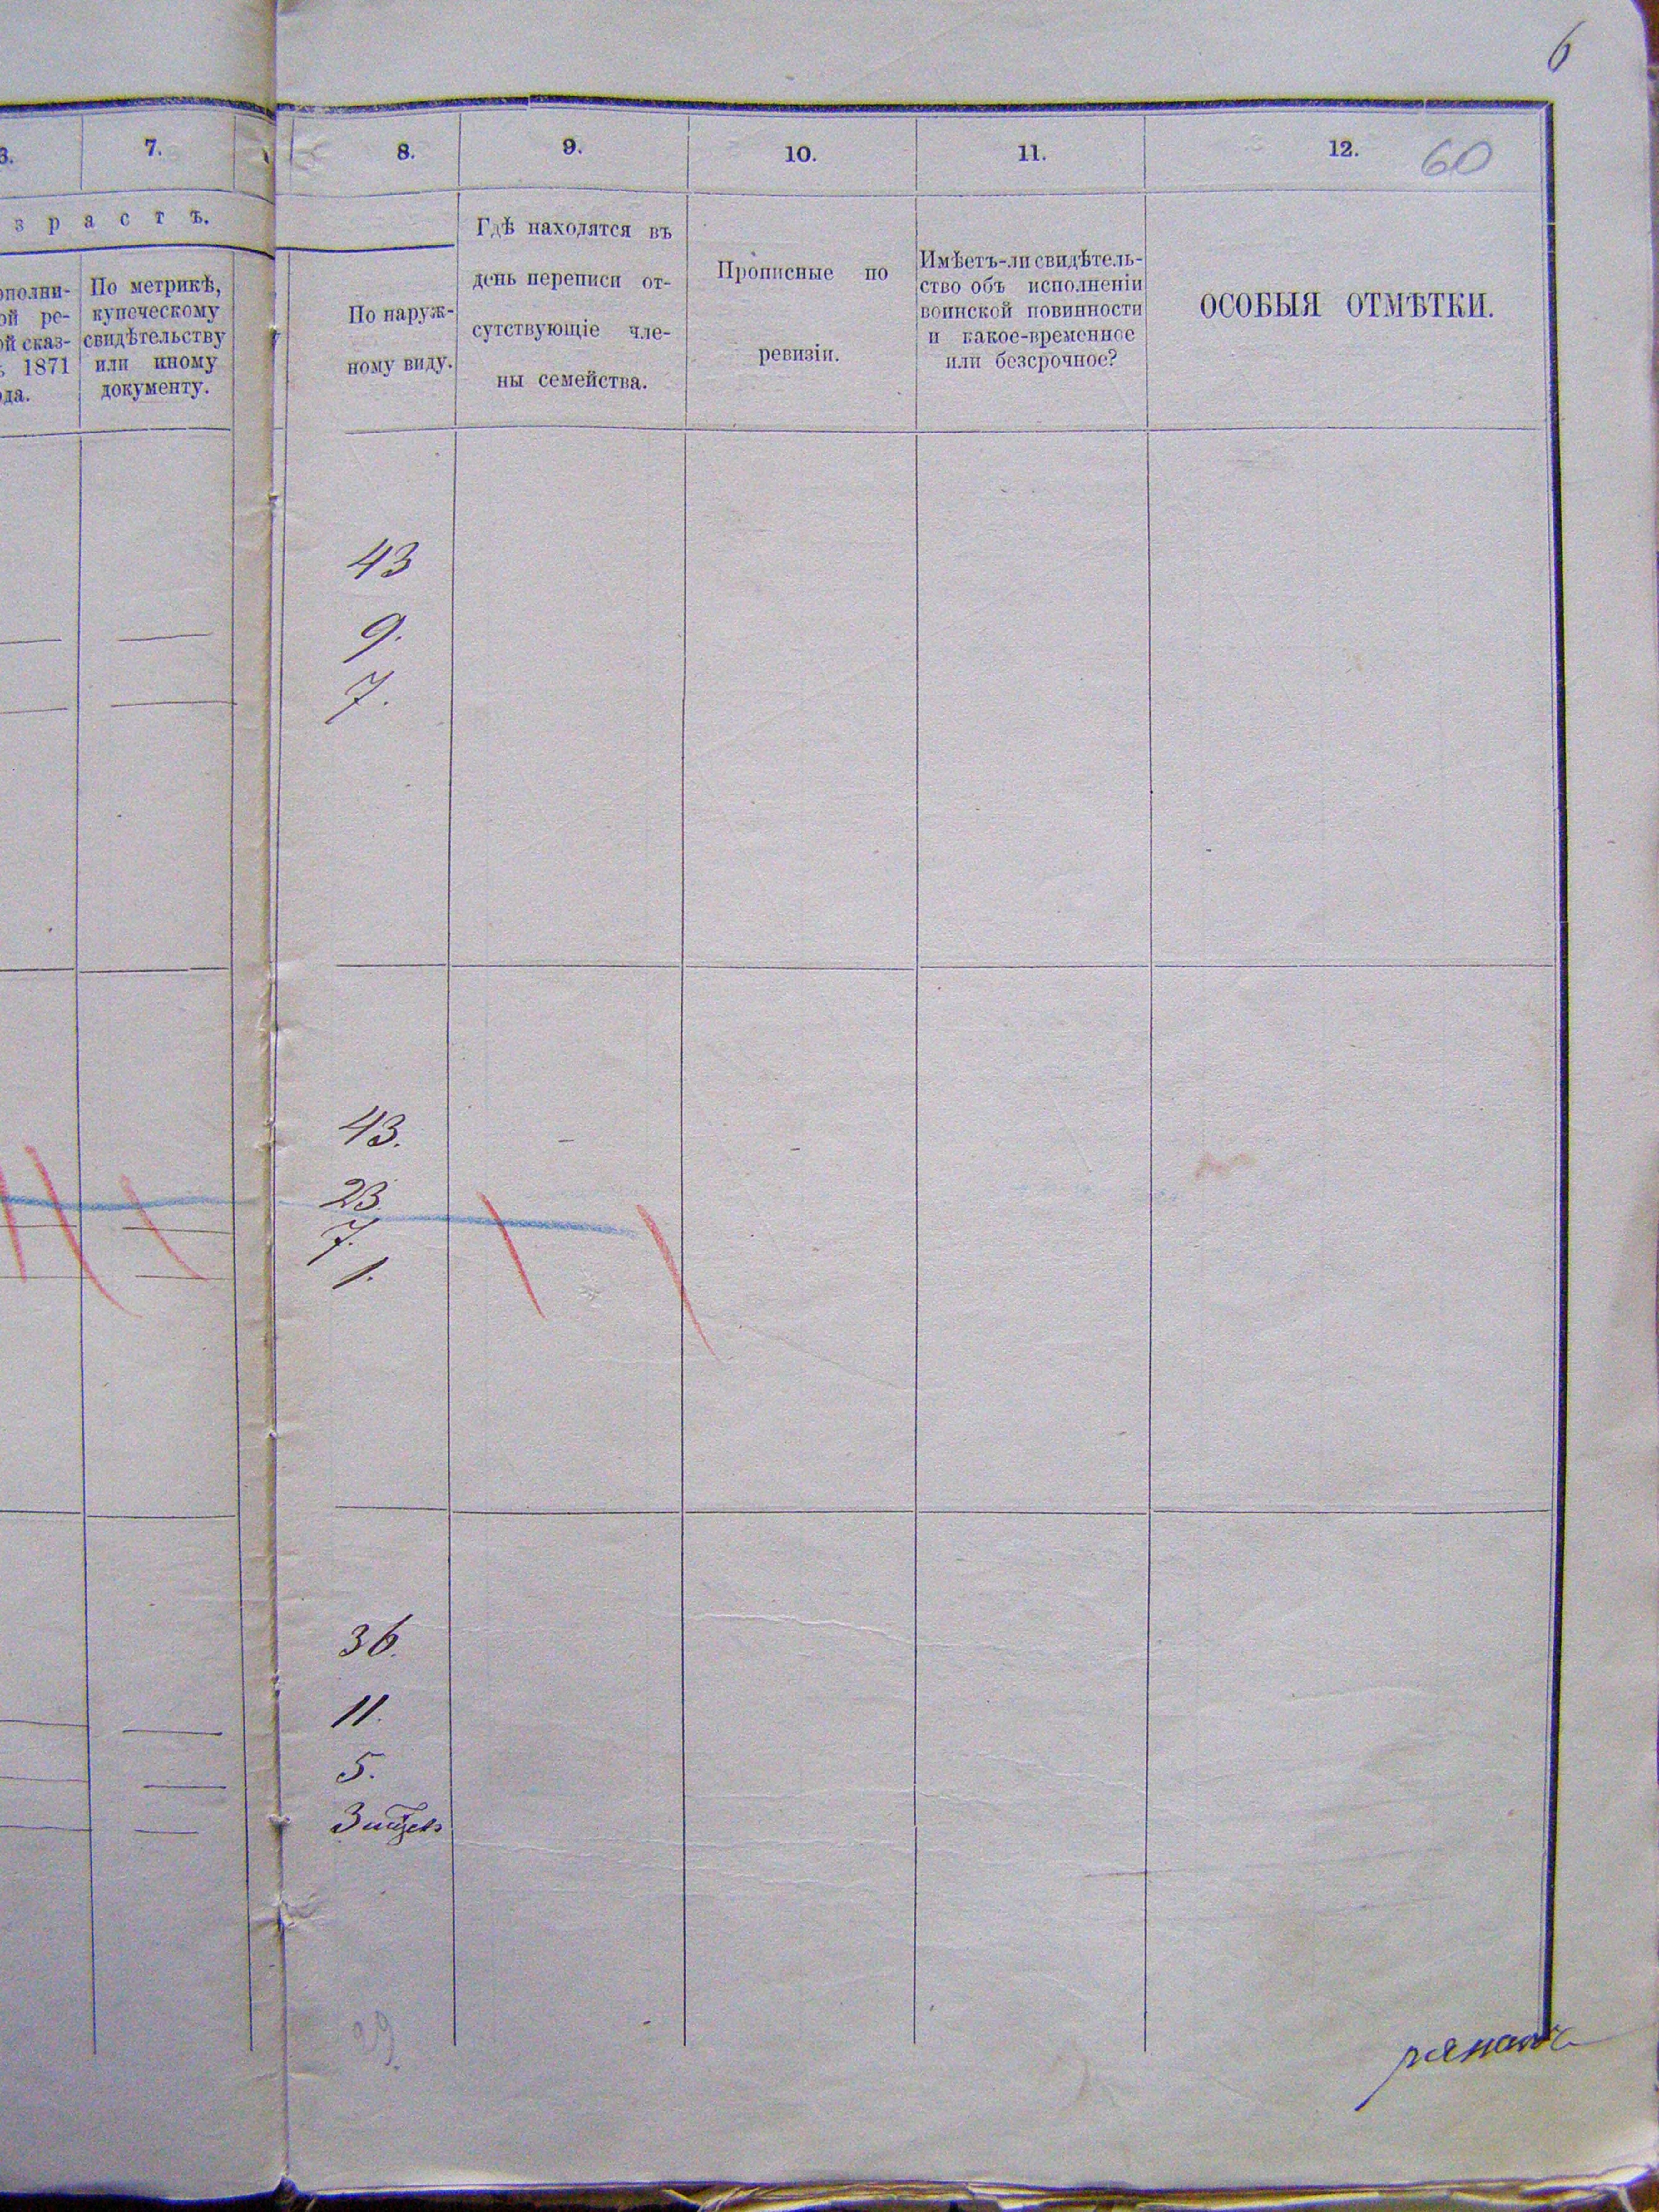 6
60
6.
7.
8.
9.
10.
11.
12.
зрастъ.
ополни-
ой ре-
ой сказ-
ъ 1871
ода.
По метрикѣ,
купеческому
свидѣтельству
или иному
документу.
По наруж-
ному виду.
Гдѣ находятся въ
день переписи от-
сутствующіе чле-
ны семейства.
Прописные по
ревизіи.
Имѣетъ-ли свидѣтель-
ство объ исполненіи
воинской повинности
и какое-временное
или безсрочное?
ОСОБЫЯ ОТМѢТКИ.
43
9.
7.
43.
23.
7.
1.
36.
11.
5.
29.